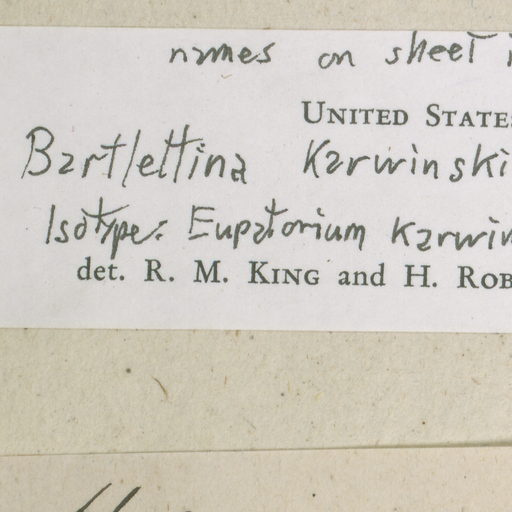 names on sheet
UNITED STATES
Bartlettina Karwinski
Isotype: Eupatorium Karwin
det. R. M. KING and H. ROB